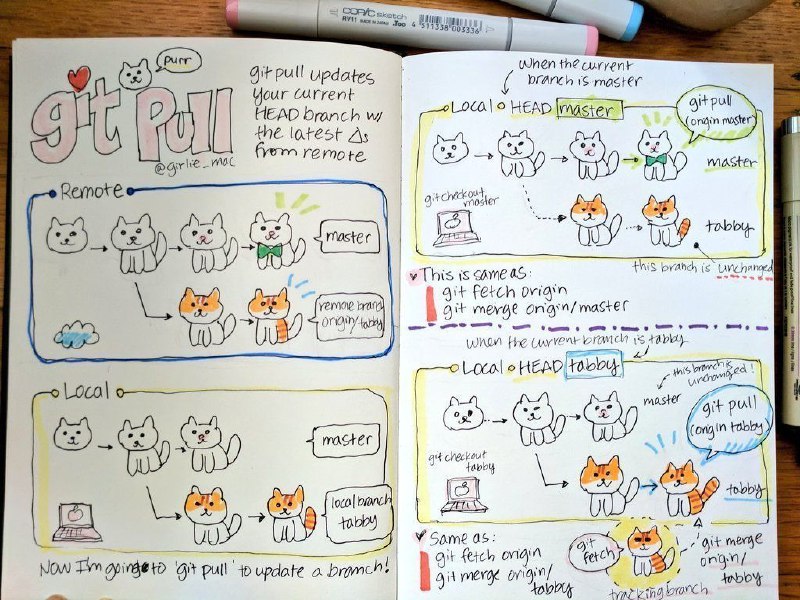 COPIC sketch
RV11
4 511338 003336
purr
git Pull
@girlie_mac
git pull updates
your current
HEAD branch w/
the latest Δs
from remote
Remote
master
remote branch
origin/tabby
Local
master
local branch
tabby
Now I'm going to 'git pull' to update a branch!
when the current
branch is master
Local HEAD master
git pull
(origin master)
master
git checkout
master
tabby
this branch is unchanged
This is same as:
git fetch origin
git merge origin/master
when the current branch is tabby
Local HEAD tabby
this branch is
unchanged!
master
git pull
(origin tabby)
git checkout
tabby
tabby
Same as:
git fetch origin
git merge origin/
tabby
git
fetch
git merge
origin/
tabby
tracking branch